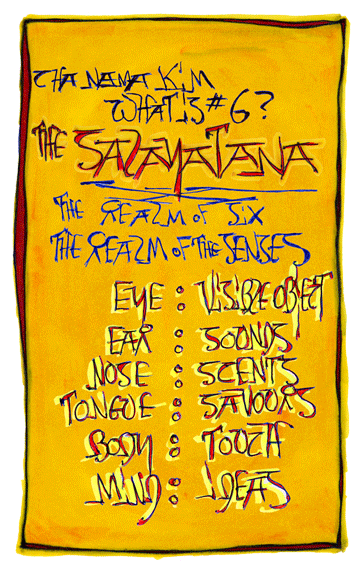 CHA NAMA KIM
WHAT IS #6?
THE SALAYATANA
THE REALM OF SIX
THE REALM OF THE SENSES
EYE : VISIBLE OBJECT
EAR : SOUNDS
NOSE : SCENTS
TONGUE : SAVOURS
BODY : TOUCH
MIND : IDEAS